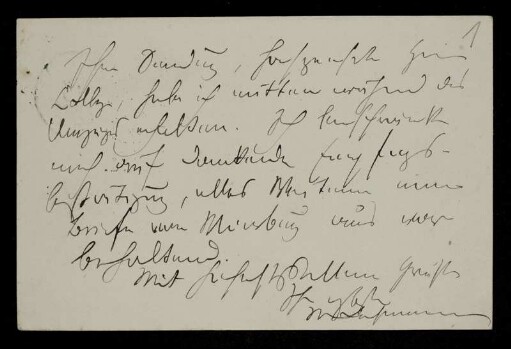 1
Ihre Sendung, hochgeehrter Herr
College, habe ich mitten während des
Umzuges erhalten. Ich beschränke
mich auf dankende Empfangs-
bestätigung, alles Weitere einem
Briefe von Würzburg aus vor-
behaltend.
Mit hochachtungsvollem Gruß
Ihr